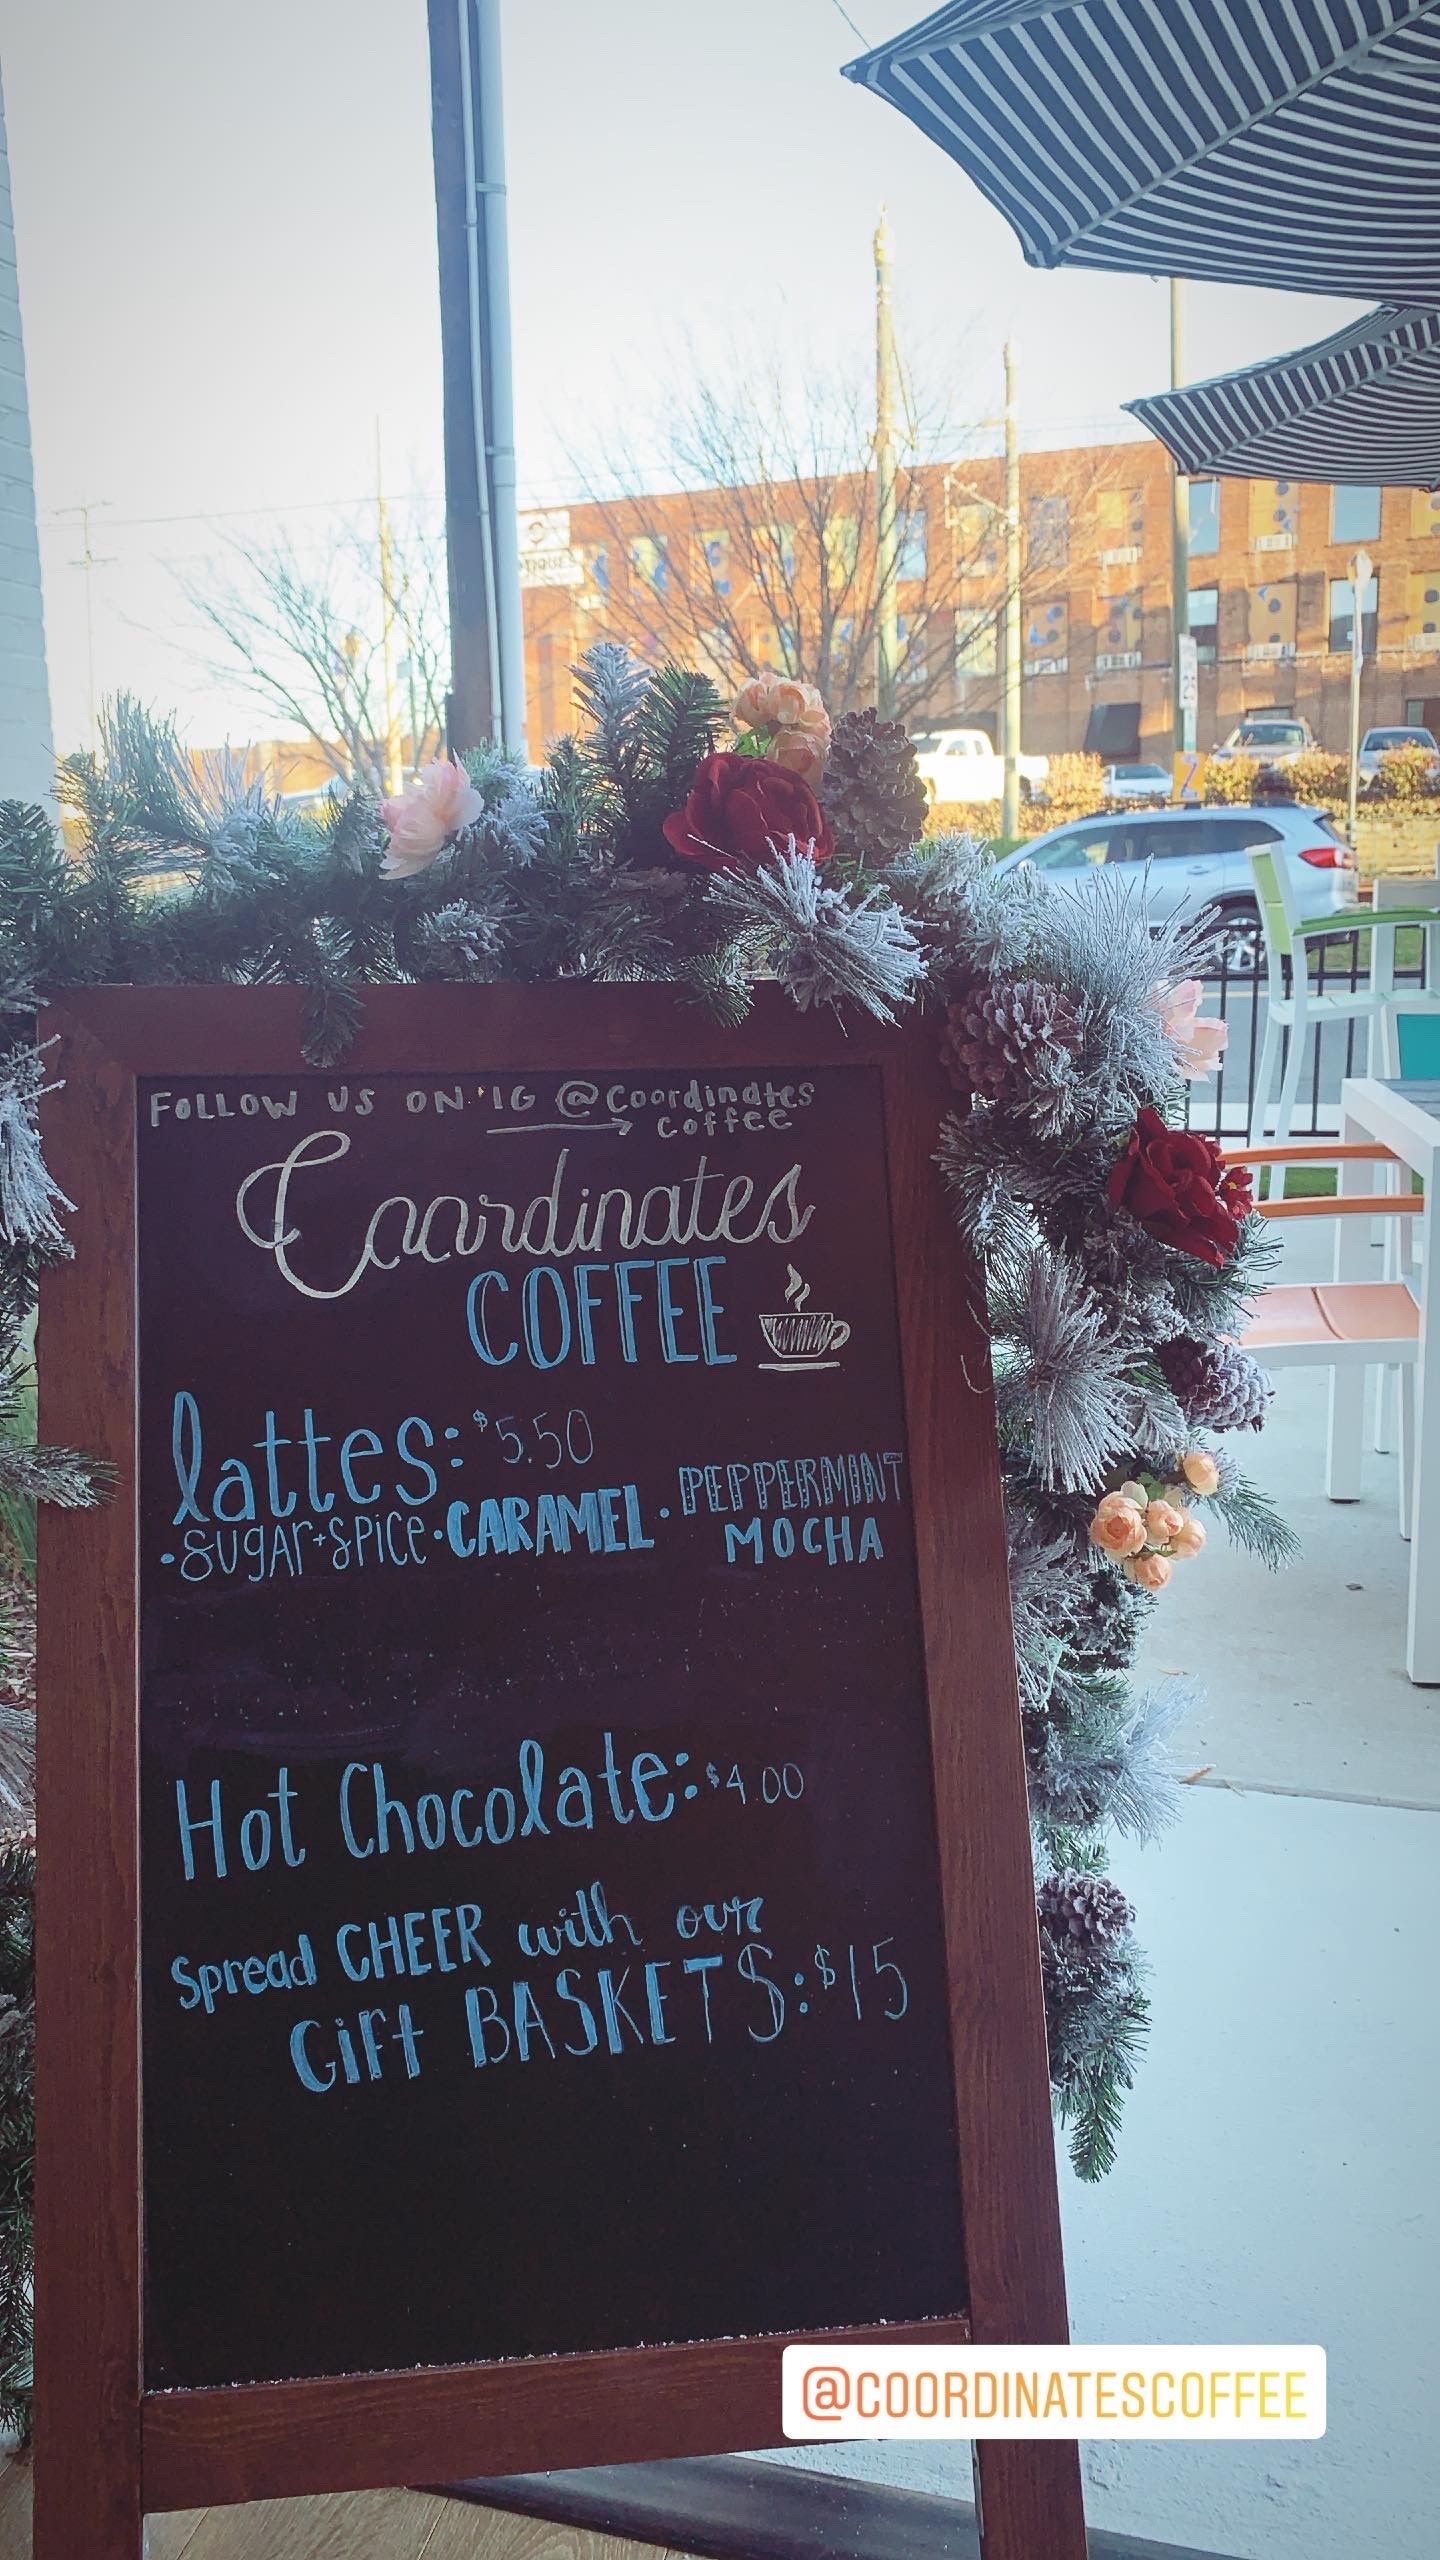 FOLLOW US ON IG @coordinates
coffee
Coordinates
COFFEE
lattes: $5.50
• sugar + spice • CARAMEL • PEPPERMINT
MOCHA
Hot Chocolate: $4.00
Spread CHEER with our
Gift BASKETS: $15
@COORDINATESCOFFEE